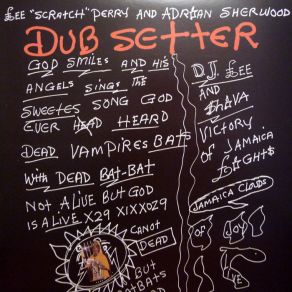 £EE "SCRATCH" PERRY AND ADRIAN SHERWOOD
DUB SETTER
GOD SMILES AND HIS
ANGELS SINGS THE
SWEETES SONG GOD
EVER HEARD
DEAD VAMPIRES BATS
WITH DEAD BAT-BAT
NOT ALIVE BUT GOD
IS ALIVE. X29 XIXXO29
CANOT
DEAD
BUT
D.J. £EE
AND
$HAVA
VICTORY
OF JAMAICA
£AGHT$
JAMAICA CLOUDS
OF JOY